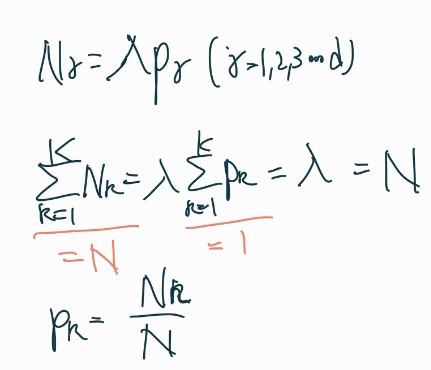 Nγ = λpγ (γ=1,2,3…d)
∑_{k=1}^{K} N_k = λ ∑_{k=1}^{K} p_k = λ = N
=N =1
p_k = N_k / N